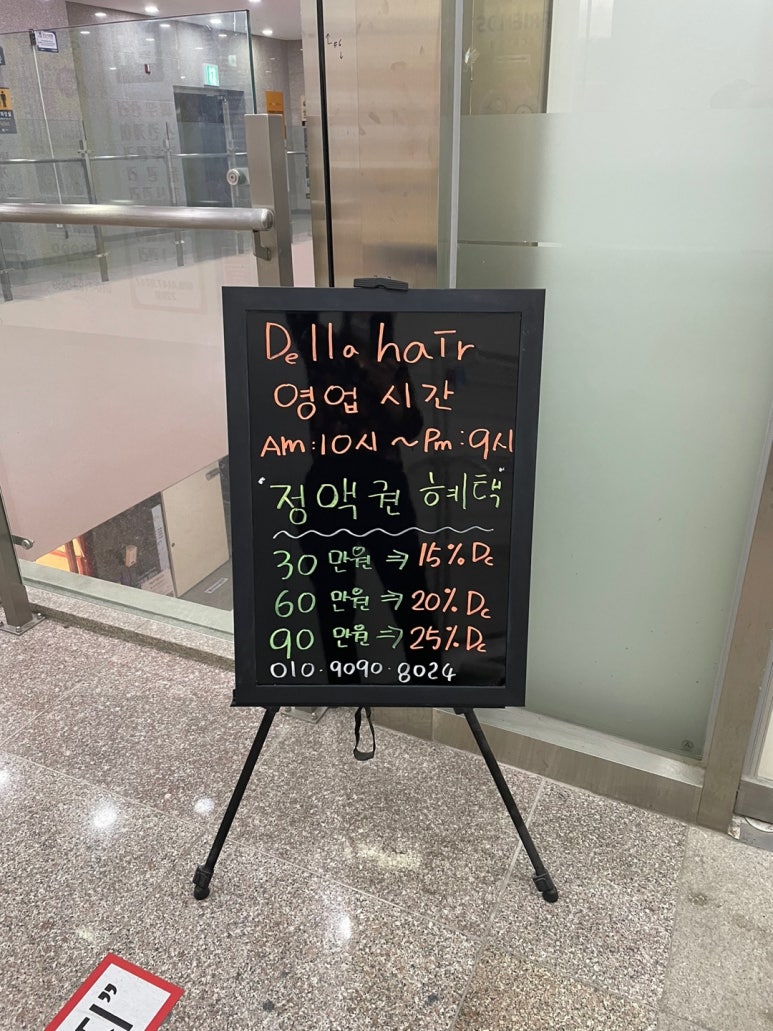 Della haIr
영업 시간
Am:10시 ~ Pm:9시
"정액권 혜택"
30 만원 ⇒ 15% Dc
60 만원 ⇒ 20% Dc
90 만원 ⇒ 25% Dc
010·9090·8024